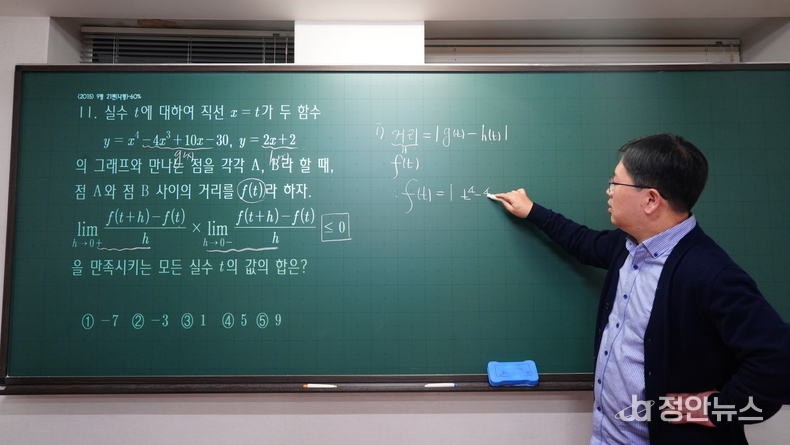 (2015) 9평 21번(나형)-60%
11. 실수 t에 대하여 직선 x = t가 두 함수
y = x⁴ − 4x³ + 10x − 30, y = 2x + 2
g(x) h(x)
의 그래프와 만나는 점을 각각 A, B라 할 때,
점 A와 점 B 사이의 거리를 f(t)라 하자.
lim h→0+ f(t+h) − f(t) / h × lim h→0− f(t+h) − f(t) / h ≤ 0
을 만족시키는 모든 실수 t의 값의 합은?
① −7 ② −3 ③ 1 ④ 5 ⑤ 9
i) 거리 = | g(t) − h(t) |
f(t)
∴ f(t) = | t⁴ − 4
정안뉴스